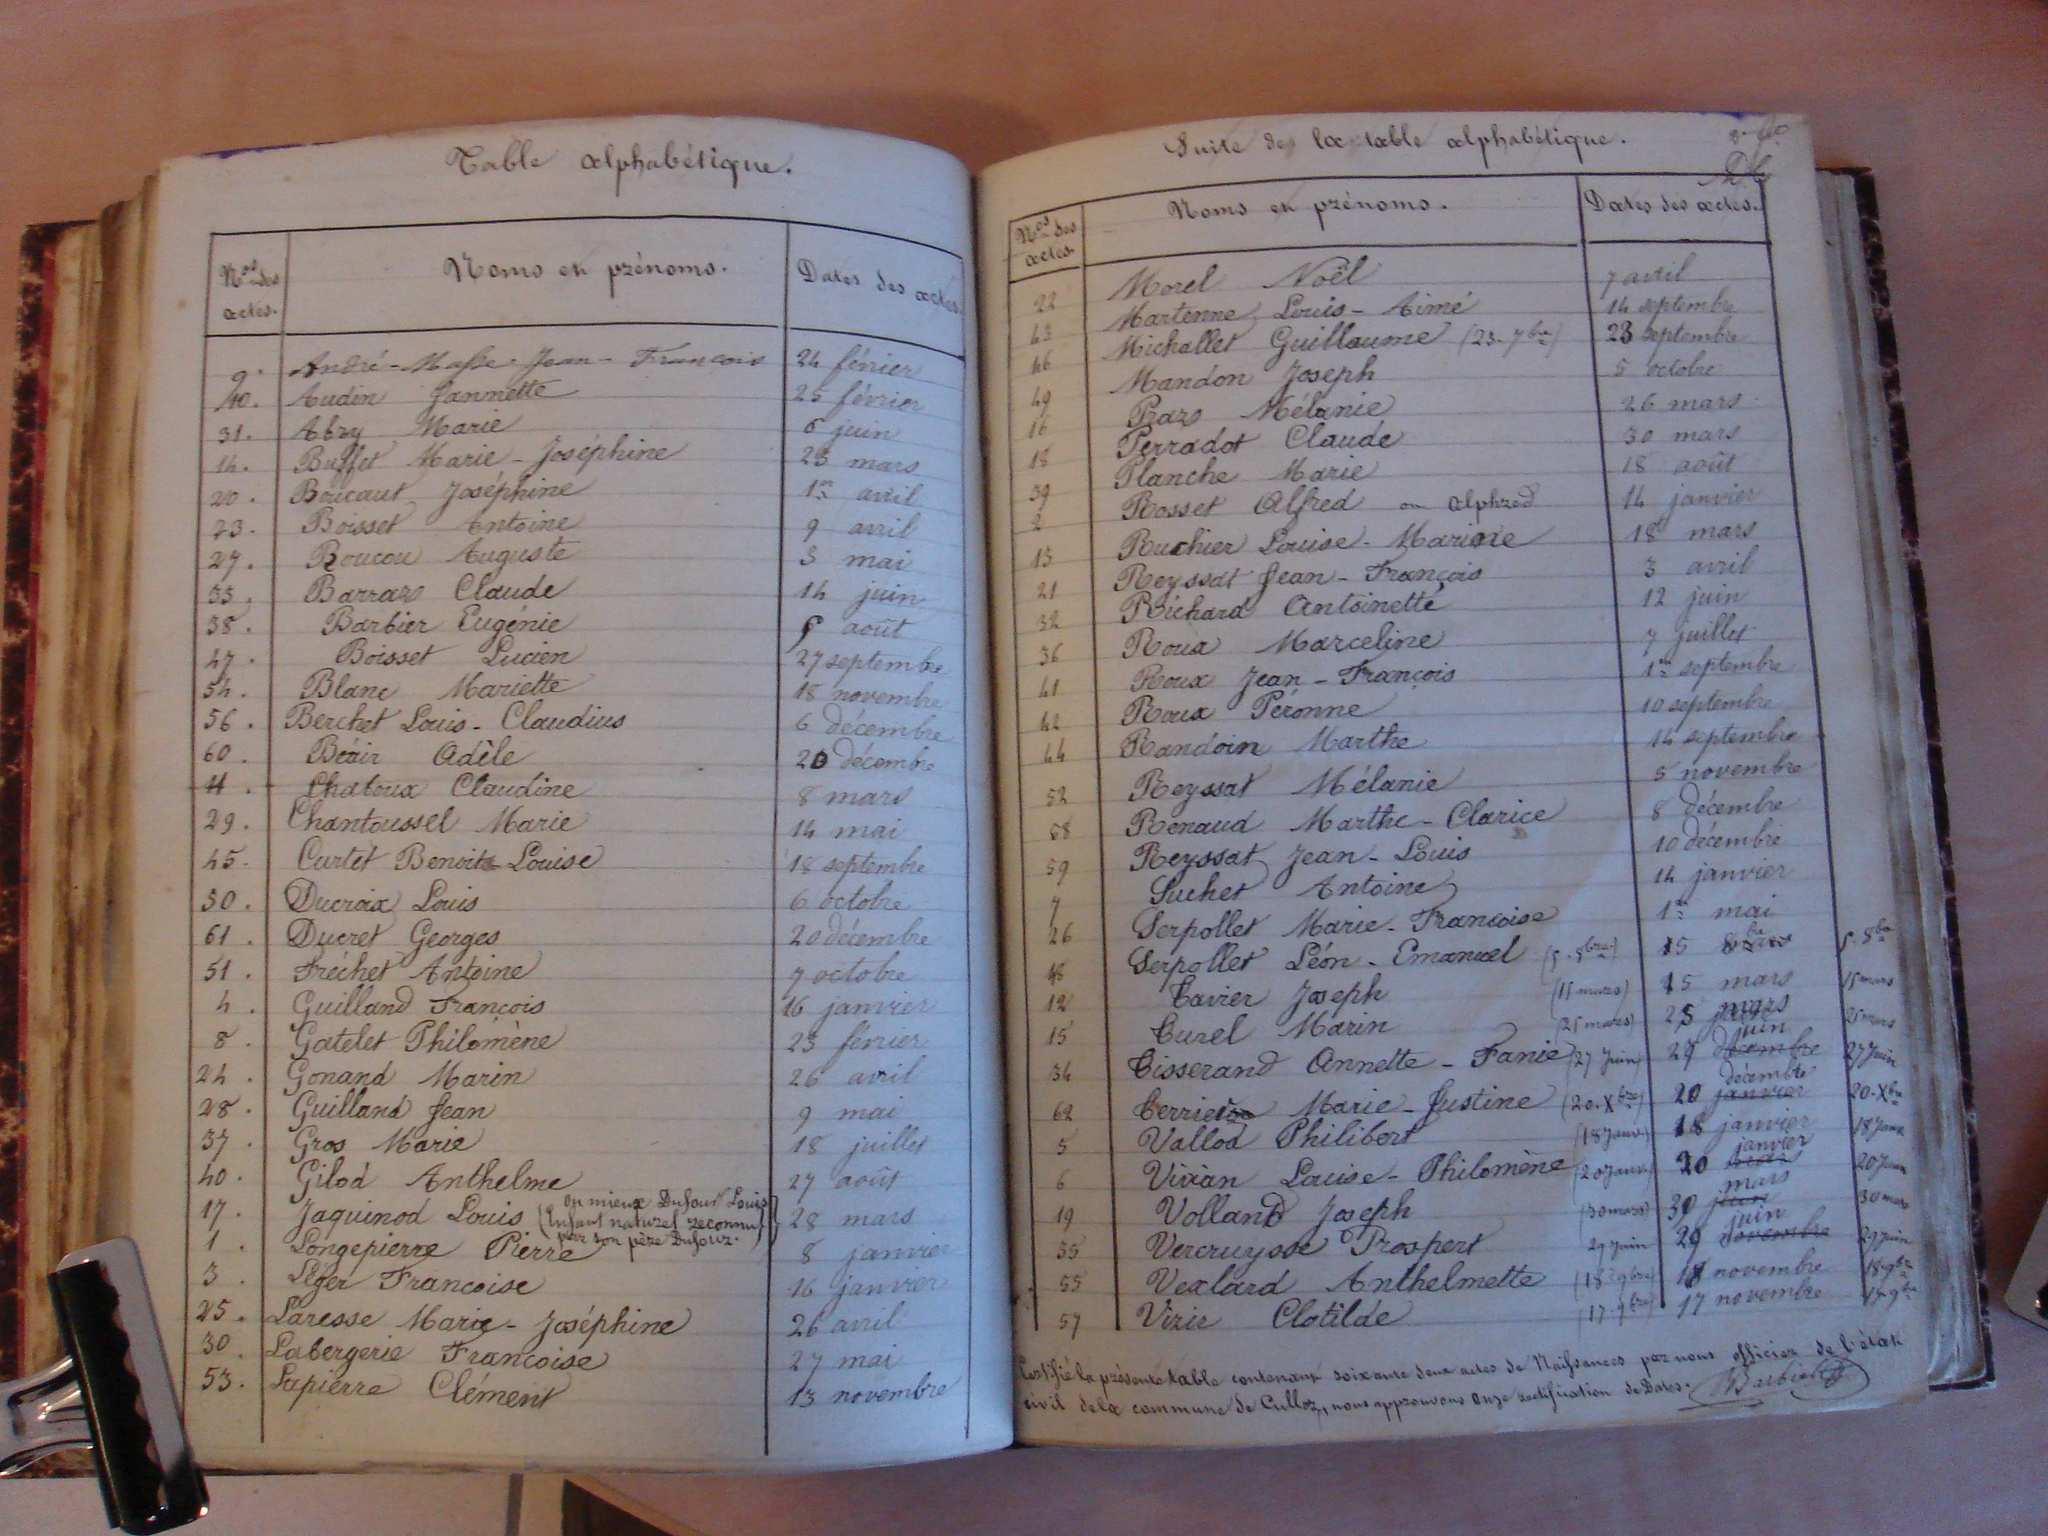 Table alphabétique.
Nos des actes. Noms et prénoms. Dates des actes.
9. André-Masse Jean-François 24 février
10. Audin Jannette 25 février
31. Abry Marie 6 juin
14. Buffet Marie-Joséphine 23 mars
20. Boucaut Joséphine 1er avril
23. Boisset Antoine 9 avril
27. Boucou Auguste 3 mai
33. Barraz Claude 14 juin
38. Barbier Eugénie août
47. Boisset Lucien 27 septembre
54. Blanc Mariette 18 novembre
56. Berchet Louis-Claudius 6 décembre
60. Béair Adèle 20 décembre
11. Chatoux Claudine 8 mars
29. Chantoussel Marie 14 mai
45. Curtet Benoite Louise 18 septembre
50. Ducroix Louis 6 octobre
61. Ducret Georges 20 décembre
51. Fréchet Antoine 7 octobre
4. Guilland François 16 janvier
8. Gatelet Philomène 23 février
24. Gonand Marin 26 avril
28. Guilland Jean 9 mai
37. Gros Marie 18 juillet
40. Gilod Anthelme 27 août
17. Jaquinod Louis (ou mieux Dufour Louis Enfant naturel reconnu par son père Dufour.) 28 mars
1. Longepierre Pierre 8 janvier
3. Léger Françoise 16 janvier
25. Laresse Marie-Joséphine 26 avril
30. Labergerie Françoise 27 mai
53. Lapierre Clément 13 novembre
Suite de la table alphabétique.
Nos des actes. Noms et prénoms. Dates des actes.
22 Morel Noël 7 avril
43 Martenne Louis-Aimé 14 septembre
46 Michallet Guillaume (23-7bre) 23 septembre
49 Mandon Joseph 5 octobre
16 Paras Mélanie 26 mars
18 Perradot Claude 30 mars
39 Planche Marie 18 août
2 Rosset Alfred ou alphred 14 janvier
13 Ruchier Louise-Marie 18 mars
21 Reyssat Jean-François 3 avril
32 Richard Antoinette 12 juin
36 Roux Marceline 7 juillet
41 Roux Jean-François 1er septembre
42 Roux Péronne 10 septembre
44 Randoin Marthe 14 septembre
52 Reyssat Mélanie 5 novembre
58 Renaud Marthe-Clarice 8 décembre
59 Reyssat Jean-Louis 10 décembre
7 Suchet Antoine 14 janvier
26 Serpollet Marie-Françoise 1er mai
48 Serpollet Léon-Emanuel (5-8bre) 5 8bre 5-8bre
12 Tavier Joseph (15 mars) 15 mars 15 mars
15 Turel Marin (25 mars) 25 mars 25 mars
34 Tisserand Annette-Fanie (27 Juin) 27 juin 27 Juin
62 Terrier Marie-Justine (20-Xbre) 20 décembre janvier 20-Xbre
5 Vallod Philibert (18 Janv.) 18 janvier 18 Janv
6 Vivian Louise-Philomène (20 Janv.) 20 janvier 20 Janv
19 Volland Joseph (30 mars) 30 mars 30 mars
35 Vercruysse Prospert 29 Juin 29 juin novembre 29 Juin
55 Vexlard Anthelmette (18-9bre) 18 novembre 18-9bre
57 Vizie Clotilde (17-9bre) 17 novembre 17-9bre
Certifié la présente table contenant soixante deux actes de Naissances par nous officier de l'état
civil de la commune de Culloz, nous approuvons onze rectification de Dates. Barbier